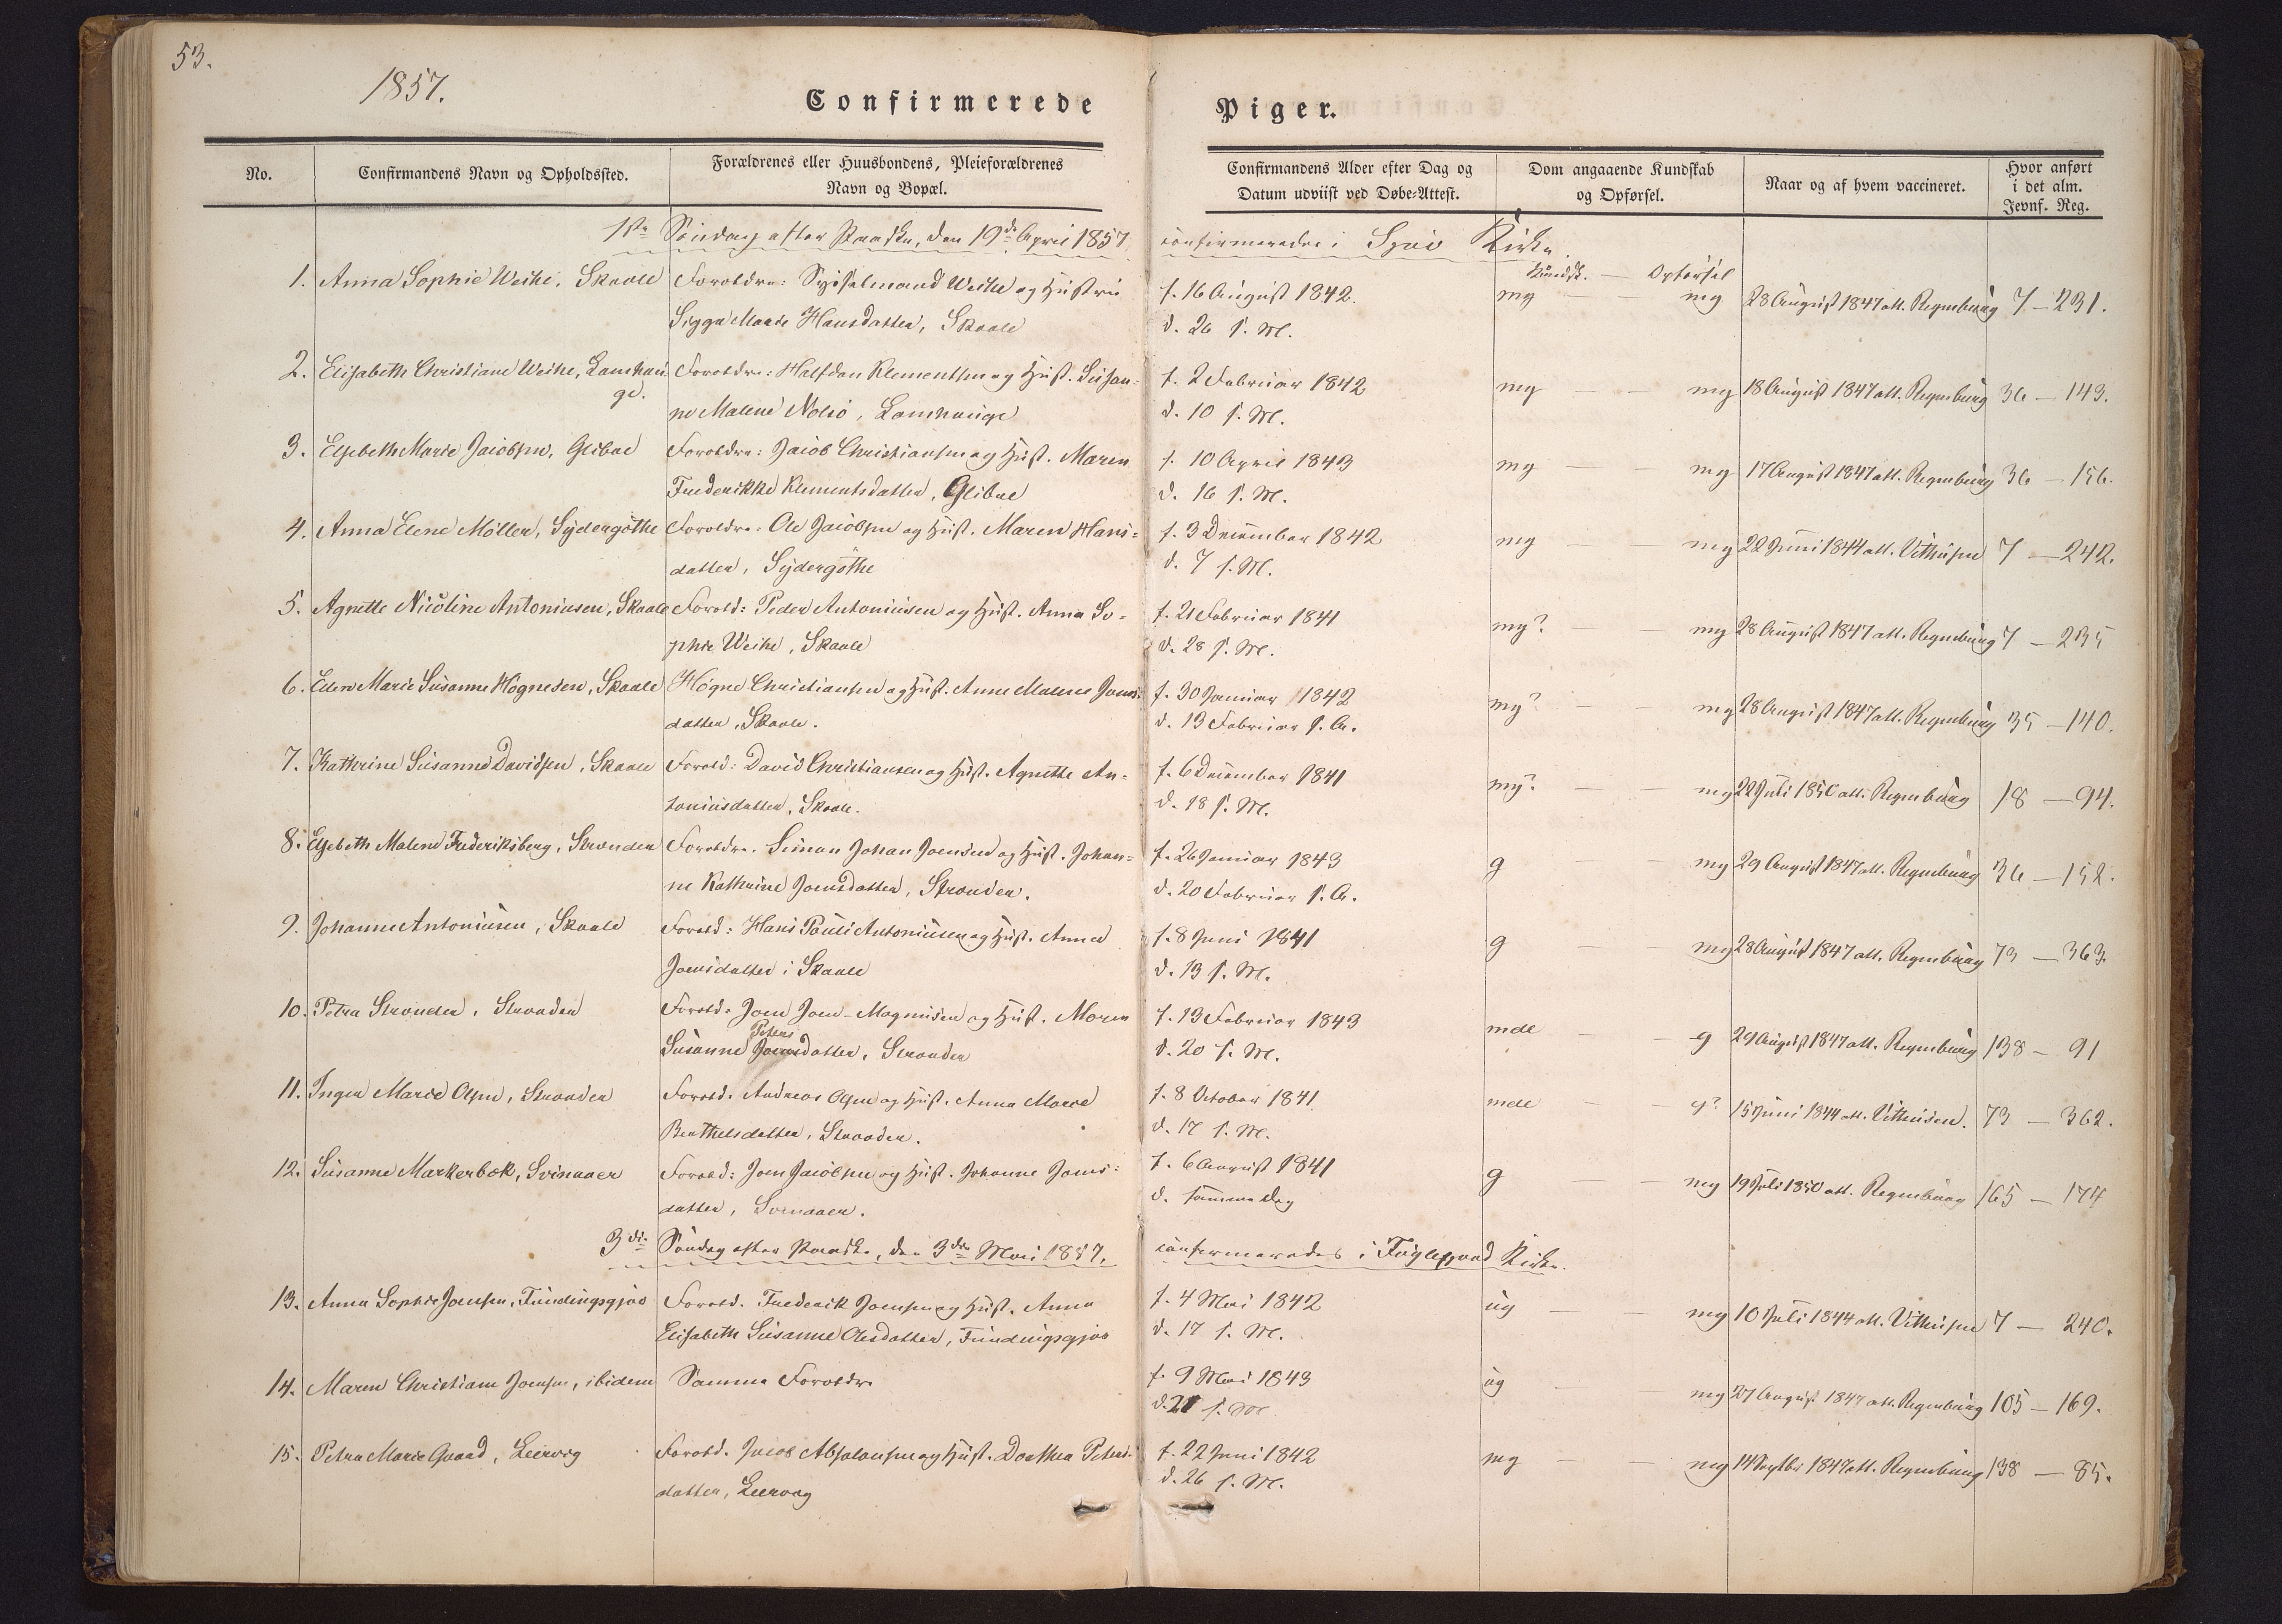 53.
1857.
Confirmerede Piger.
No.
Confirmandens Navn og Opholdssted.
Forældrenes eller Huusbondens, Pleieforældrenes
Navn og Bopæl.
Confirmandens Alder efter Dag og
Datum udviist ved Døbe-Attest.
Dom angaaende Kundskab
og Opførsel.
Naar og af hvem vaccineret.
Hvor anført
i det alm.
Jevnf. Reg.
1ste Søndag efter Paaske, den 19de April 1857 confirmeredes i Kirke.
Kundsk. — Opførsel
1. Anna Sophie Weihe, Skaale Forældre: Sysselmand Weihe og Hustru f. 16 August 1842. mg — — mg 28 August 1847 att. Regenburg 7 — 231.
Sigga Marie Hansdatter, Skaale d. 26 s. M.
2. Elisabeth Christiane Weihe, Lamhau- Forældre: Halfdan Klementsen og Hust. Susan= f. 2 Februar 1842 mg — — mg 18 August 1847 att. Regenburg 36 — 143.
ge. ne Malene Nolsø, Lamhauge d. 10 s. M.
3. Elsebeth Marie Jacobsen, Glibre Forældre: Jacob Christiansen og Hust. Maren f. 10 April 1843 mg — — mg 17 August 1847 att. Regenburg 36 — 156.
Frederikke Klementsdatter, Glibre d. 16 s. M.
4. Anna Elene Møller, Sydergøthe Forældre: Ole Jacobsen og Hust. Maren Hans= f. 3 December 1842 mg — — mg 22 Juni 1844 att. Vithusen 7 — 242.
datter, Sydergøthe d. 7 s. M.
5. Agnette Nicoline Antoniusen, Skaale Foræld: Peder Antoniusen og Hust. Anna So= f. 21 Februar 1841 mg? — — mg 28 August 1847 att. Regenburg 7 — 235
phie Weihe, Skaale d. 28 s. M.
6. Elen Marie Susanne Høgnesen, Skaale Høgne Christiansen og Hust. Anne Malene Joens= f. 30 Januar 1842 mg? — — mg 28 August 1847 att. Regenburg 35 — 140.
datter, Skaale. d. 13 Februar s. A.
7. Kathrine Susanne Davidsen, Skaale Foræld: David Christiansen og Hust. Agnette An= f. 6 December 1841 mg? — — mg 22 Juli 1850 att. Regenburg 18 — 94.
toniusdatter, Skaale. d. 18 s. M.
8. Elsebeth Malene Frederiksberg, Strænder Forældre. Simon Johan Joensen og Hust. Johan= f. 26 Januar 1843 g — — mg 29 August 1847 att. Regenburg 36 — 152.
ne Kathrine Joensdatter, Strænder. d. 20 Februar s. A.
9. Johanne Antoniusen, Skaale Foræld: Hans Pauli Antoniusen og Hust. Anna f. 8 Juni 1841 g — — mg 28 August 1847 att. Regenburg 73 — 363.
Joensdatter i Skaale d. 13 s. M.
10. Petra Strænder, Strænder Foræld. Joen Joen-Magnusen og Hust. Maren f. 13 Februar 1843 mdl — — g 29 August 1847 att. Regenburg 138 — 91
Susanne Peters datter, Strænder d. 20 s. M.
11. Inger Marie Olsen, Strænder Foræld. Andreas Olsen og Hust. Anna Marie f. 8 October 1841 mdl — — g? 15 Juni 1844 att. Vithusen. 73 — 362.
Berthelsdatter, Strænder. d. 17 s. M.
12. Susanne Markerbæk, Svinaaer Foræld: Joen Jacobsen og Hust. Johanne Joens= f. 6 August 1841 g — — mg 19 Juli 1850 att. Regenburg 165 — 174
datter, Svinaaer. d. samme Dag
3die Søndag efter Paaske, den 3die Mai 1857, confirmeredes i Fuglefjord Kirke.
13. Anna Sophie Joensen, Fundingsgjov Foræld. Frederik Joensen og Hust. Anna f. 4 Mai 1842 ug — — mg 10 Juli 1844 att. Vithusen 7 — 240.
Elisabeth Susanne Olesdatter, Fundingsgjov d. 17 s. M.
14. Maren Christiane Joensen, ibidem Samme Forældre f. 9 Mai 1843 ug — — mg 27 August 1847 att. Regenburg 105 — 169.
d. 21 s. M.
15. Petra Marie Gaard, Leervig Foræld. Jacob Absalonsen og Hust. Dorthea Peters= f. 22 Juni 1842 mg — — mg 14 Septbr 1847 att. Regenburg 138 — 85.
datter, Leervig d. 26 s. M.